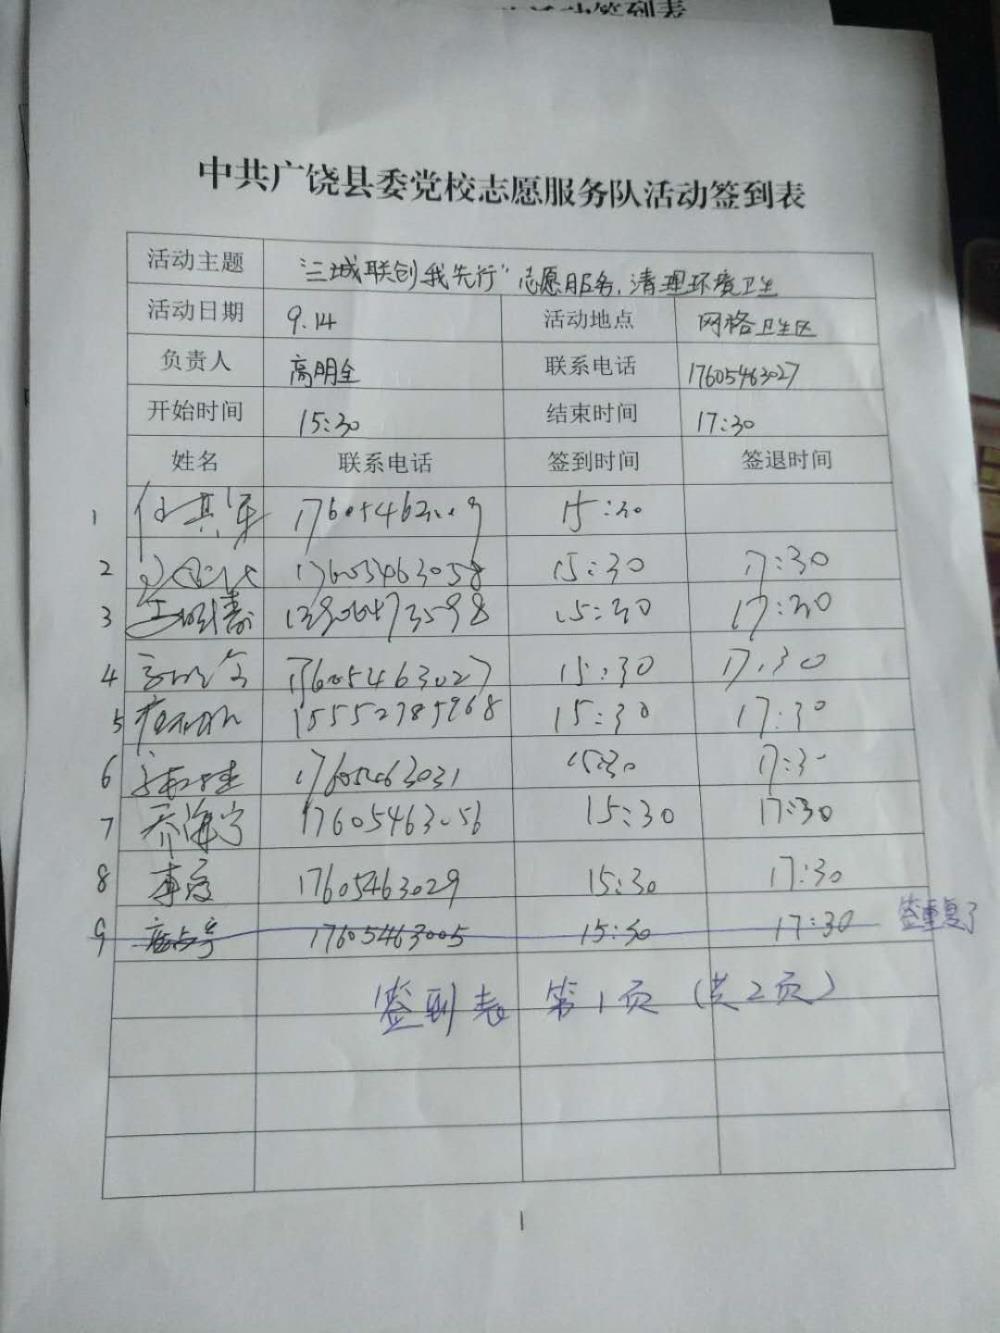 活动签到表
中共广饶县委党校志愿服务队活动签到表
活动主题 "三城联创我先行"志愿服务,清理环境卫生
活动日期 9.14 活动地点 网格卫生区
负责人 高明全 联系电话 17605463027
开始时间 15:30 结束时间 17:30
姓名 联系电话 签到时间 签退时间
1 17605463009 15:30
2 17605463058 15:30 17:30
3 15:30 17:30
4 高明全 17605463027 15:30 17.30
5 15552785968 15:30 17:30
6 17605463031 15:30 17:30
7 乔海宁 17605463056 15:30 17:30
8 17605463029 15:30 17:30
9 17605463005 15:30 17:30 签重复了
签到表 第1页(共2页)
1